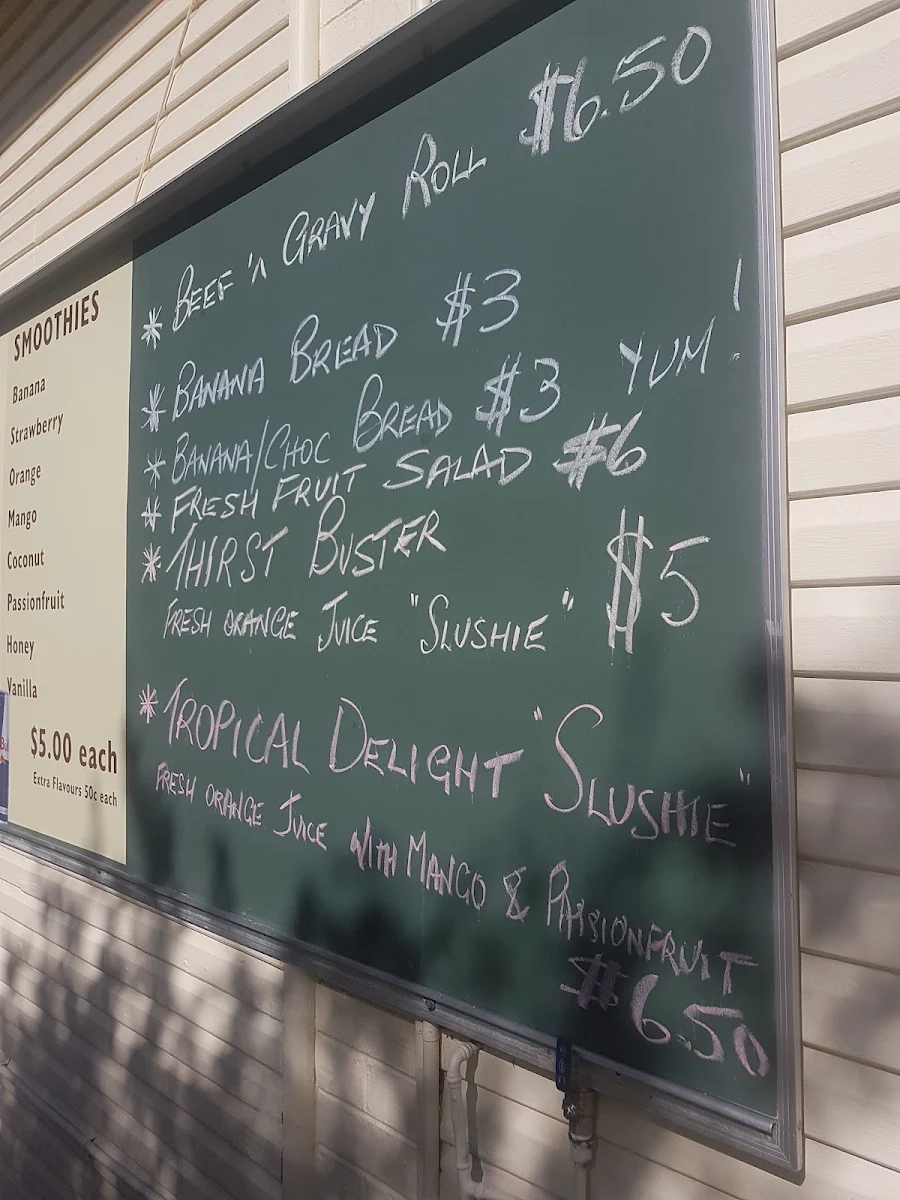 SMOOTHIES
Banana
Strawberry
Orange
Mango
Coconut
Passionfruit
Honey
Vanilla
$5.00 each
Extra Flavours 50c each
* BEEF 'n GRAVY ROLL $6.50
* BANANA BREAD $3
* BANANA/CHOC BREAD $3 YUM!
* FRESH FRUIT SALAD $6
* THIRST BUSTER
FRESH ORANGE JUICE "SLUSHIE" $5
* TROPICAL DELIGHT "SLUSHIE"
FRESH ORANGE JUICE WITH MANGO & PASSIONFRUIT
$6.50